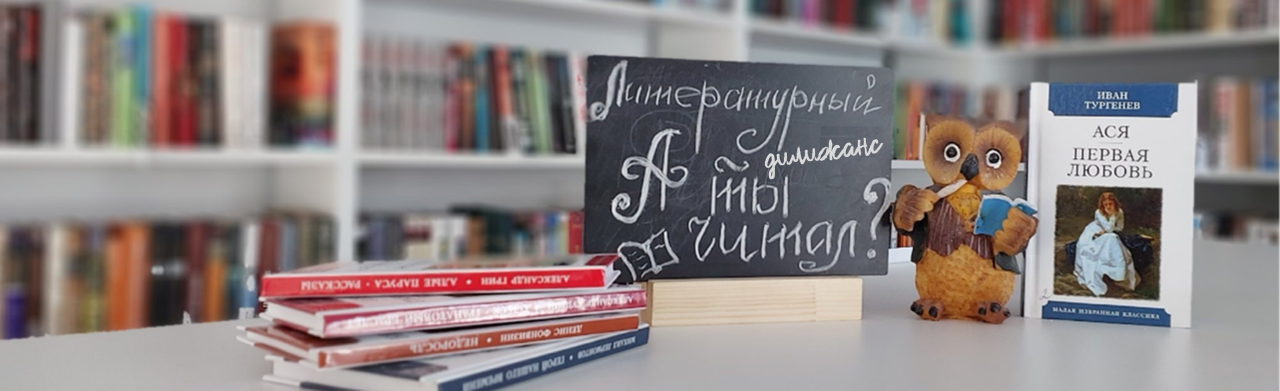 Литературный
дилижанс
А ты
читал?
ИВАН
ТУРГЕНЕВ
АСЯ
ПЕРВАЯ
ЛЮБОВЬ
МАЛАЯ ИЗБРАННАЯ КЛАССИКА
АЛЕКСАНДР ГРИН • АЛЫЕ ПАРУСА • РАССКАЗЫ
ГРАНАТОВЫЙ БРАСЛЕТ
ДЕНИС ФОНВИЗИН • НЕДОРОСЛЬ
МИХАИЛ ЛЕРМОНТОВ • ГЕРОЙ НАШЕГО ВРЕМЕНИ